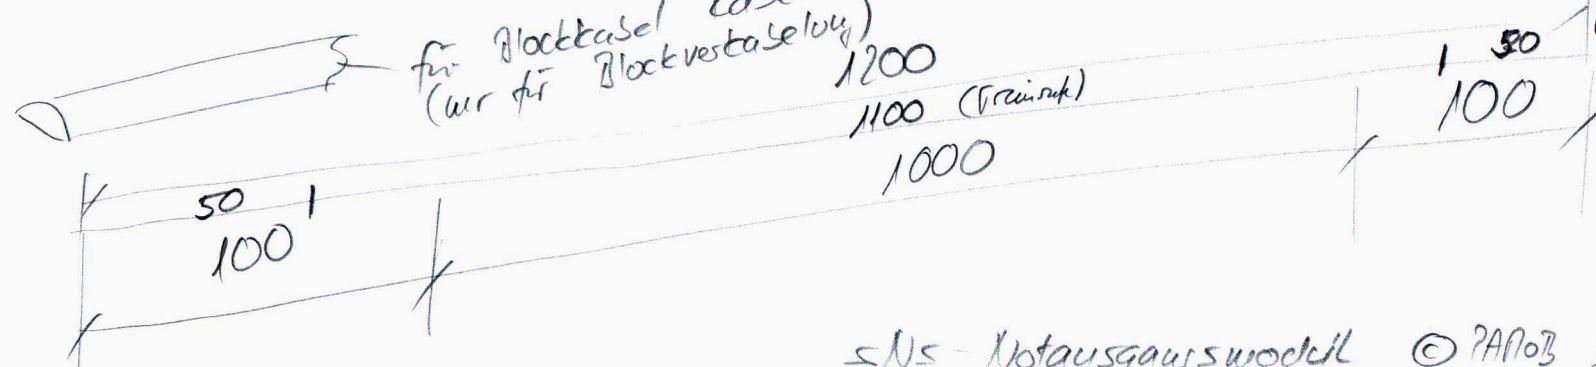 für Blockkabel
(nur für Blockverkabelung)
1200
1100
1000
50
100
50
100
sNs - Notausgangsmodul © PAMoB